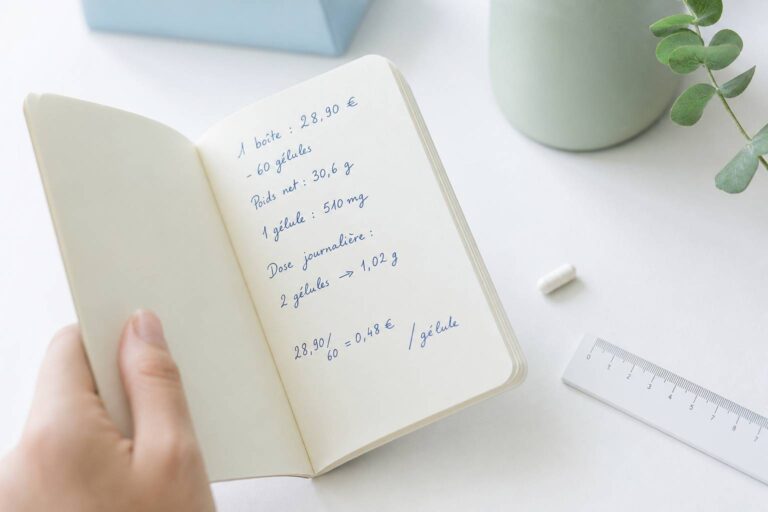 1 boîte : 28,90 €
- 60 gélules
Poids net : 30,6 g
1 gélule : 510 mg
Dose journalière :
2 gélules → 1,02 g
28,90/60 = 0,48 € /gélule
0 1 2 3 4 5 6 7 8